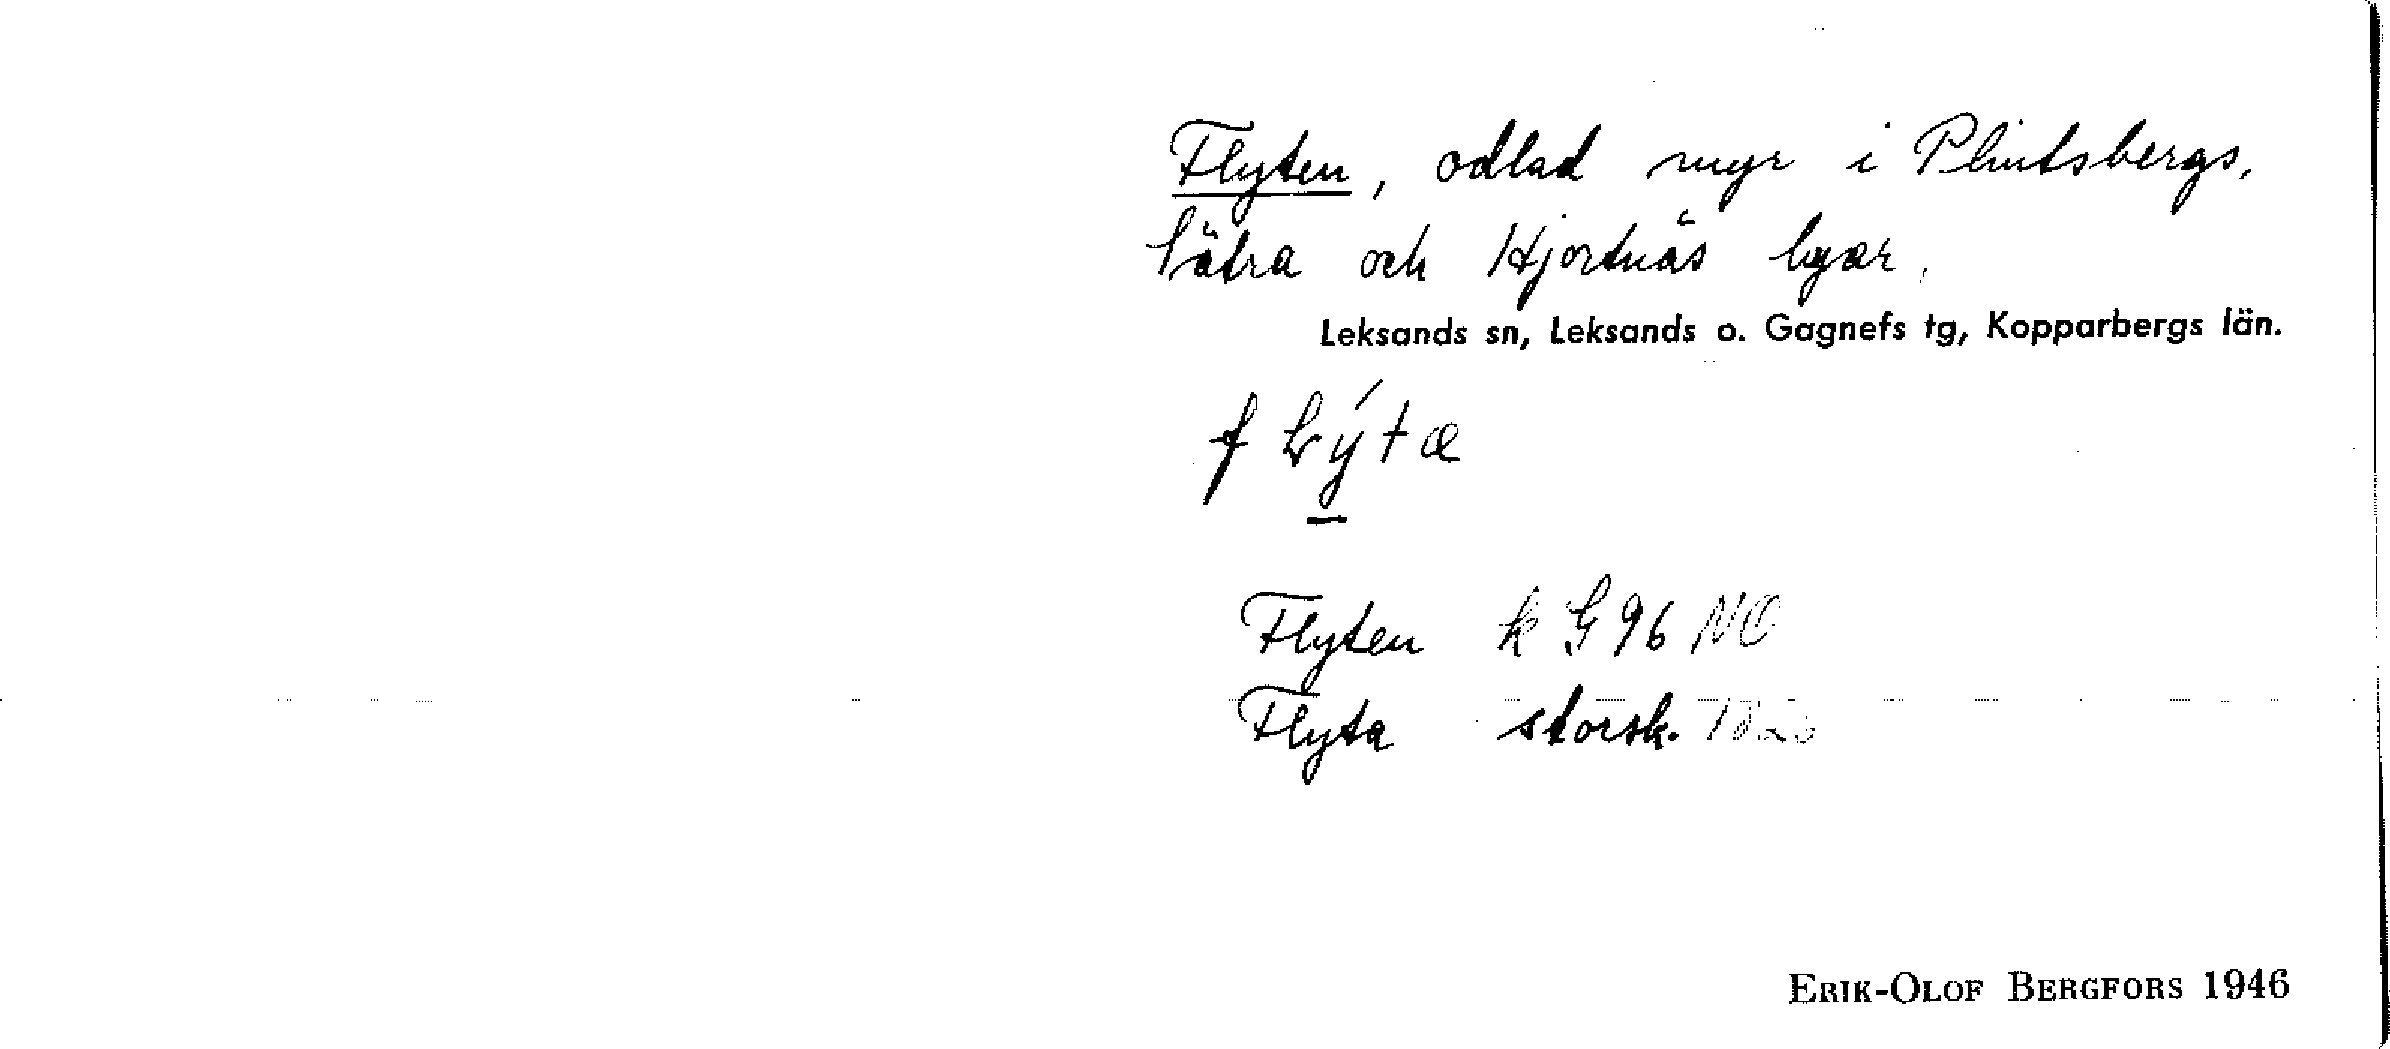 Flyten, odlad myr i Plintsbergs,
Sätra och Hjortnäs byar.
Leksands sn, Leksands o. Gagnefs tg, Kopparbergs län.
Flyten k G 96 NO
Flyta storsk. 182
ERIK-OLOF BERGFORS 1946